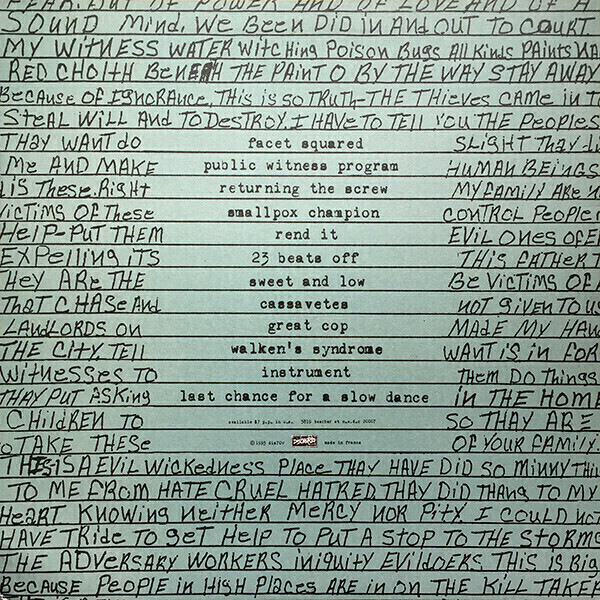 FEAR. BUT OF POWER AND OF LOVE AND OF A
SOUND MIND. WE BEEN DID IN AND OUT TO COURT
MY WITNESS WATER WITCHING POISON BUGS ALL KINDS PAINTS
RED CHOITH BENETH THE PAINT O BY THE WAY STAY AWAY
BECAUSE OF IGNORANCE, THIS IS SO TRUTH-THE THIEVES CAME IN T
STEAL WILL AND TO DESTROY. I HAVE TO TELL YOU THE PEOPLES
THAY WANT DO facet squared SLIGHT THAY
ME AND MAKE public witness program HUMAN BEINGS
IS THESE. RIGHT returning the screw MY FAMILY ARE
VICTIMS OF THESE smallpox champion CONTROL PEOPLE
HELP-PUT THEM rend it EVIL ONES OF
EXPELLING ITS 23 beats off THIS FATHER T
HEY ARE THE sweet and low BE VICTIMS OF
THAT CHASE AND cassavetes NOT GIVEN TO US
LANDLORDS ON great cop MADE MY
THE CITY. TELL walken's syndrome WANT IS IN FOR
WITNESSES TO instrument THEM DO THINGS
THAY PUT ASKING last chance for a slow dance IN THE HOME
CHILDREN TO available $7 p.p. in u.s. 3819 beecher st n.w.d.c 20007 SO THAY ARE
O TAKE THESE ©1993 dis70v DISCHORD made in france OF YOUR FAMILY
THIS IS A EVIL WICKEDNESS PLACE THAY HAVE DID SO MINNY THI
TO ME FROM HATE CRUEL HATRED THAY DID THANG TO MY
HEART KNOWING NEITHER MERCY NOR PITY I COULD NOT
HAVE TRIDE TO GET HELP TO PUT A STOP TO THE STORMS
THE ADVERSARY WORKERS INIQUITY EVILDOERS THIS IS BIG
BECAUSE PEOPLE IN HIGH PLACES ARE IN ON THE KILL TAKER